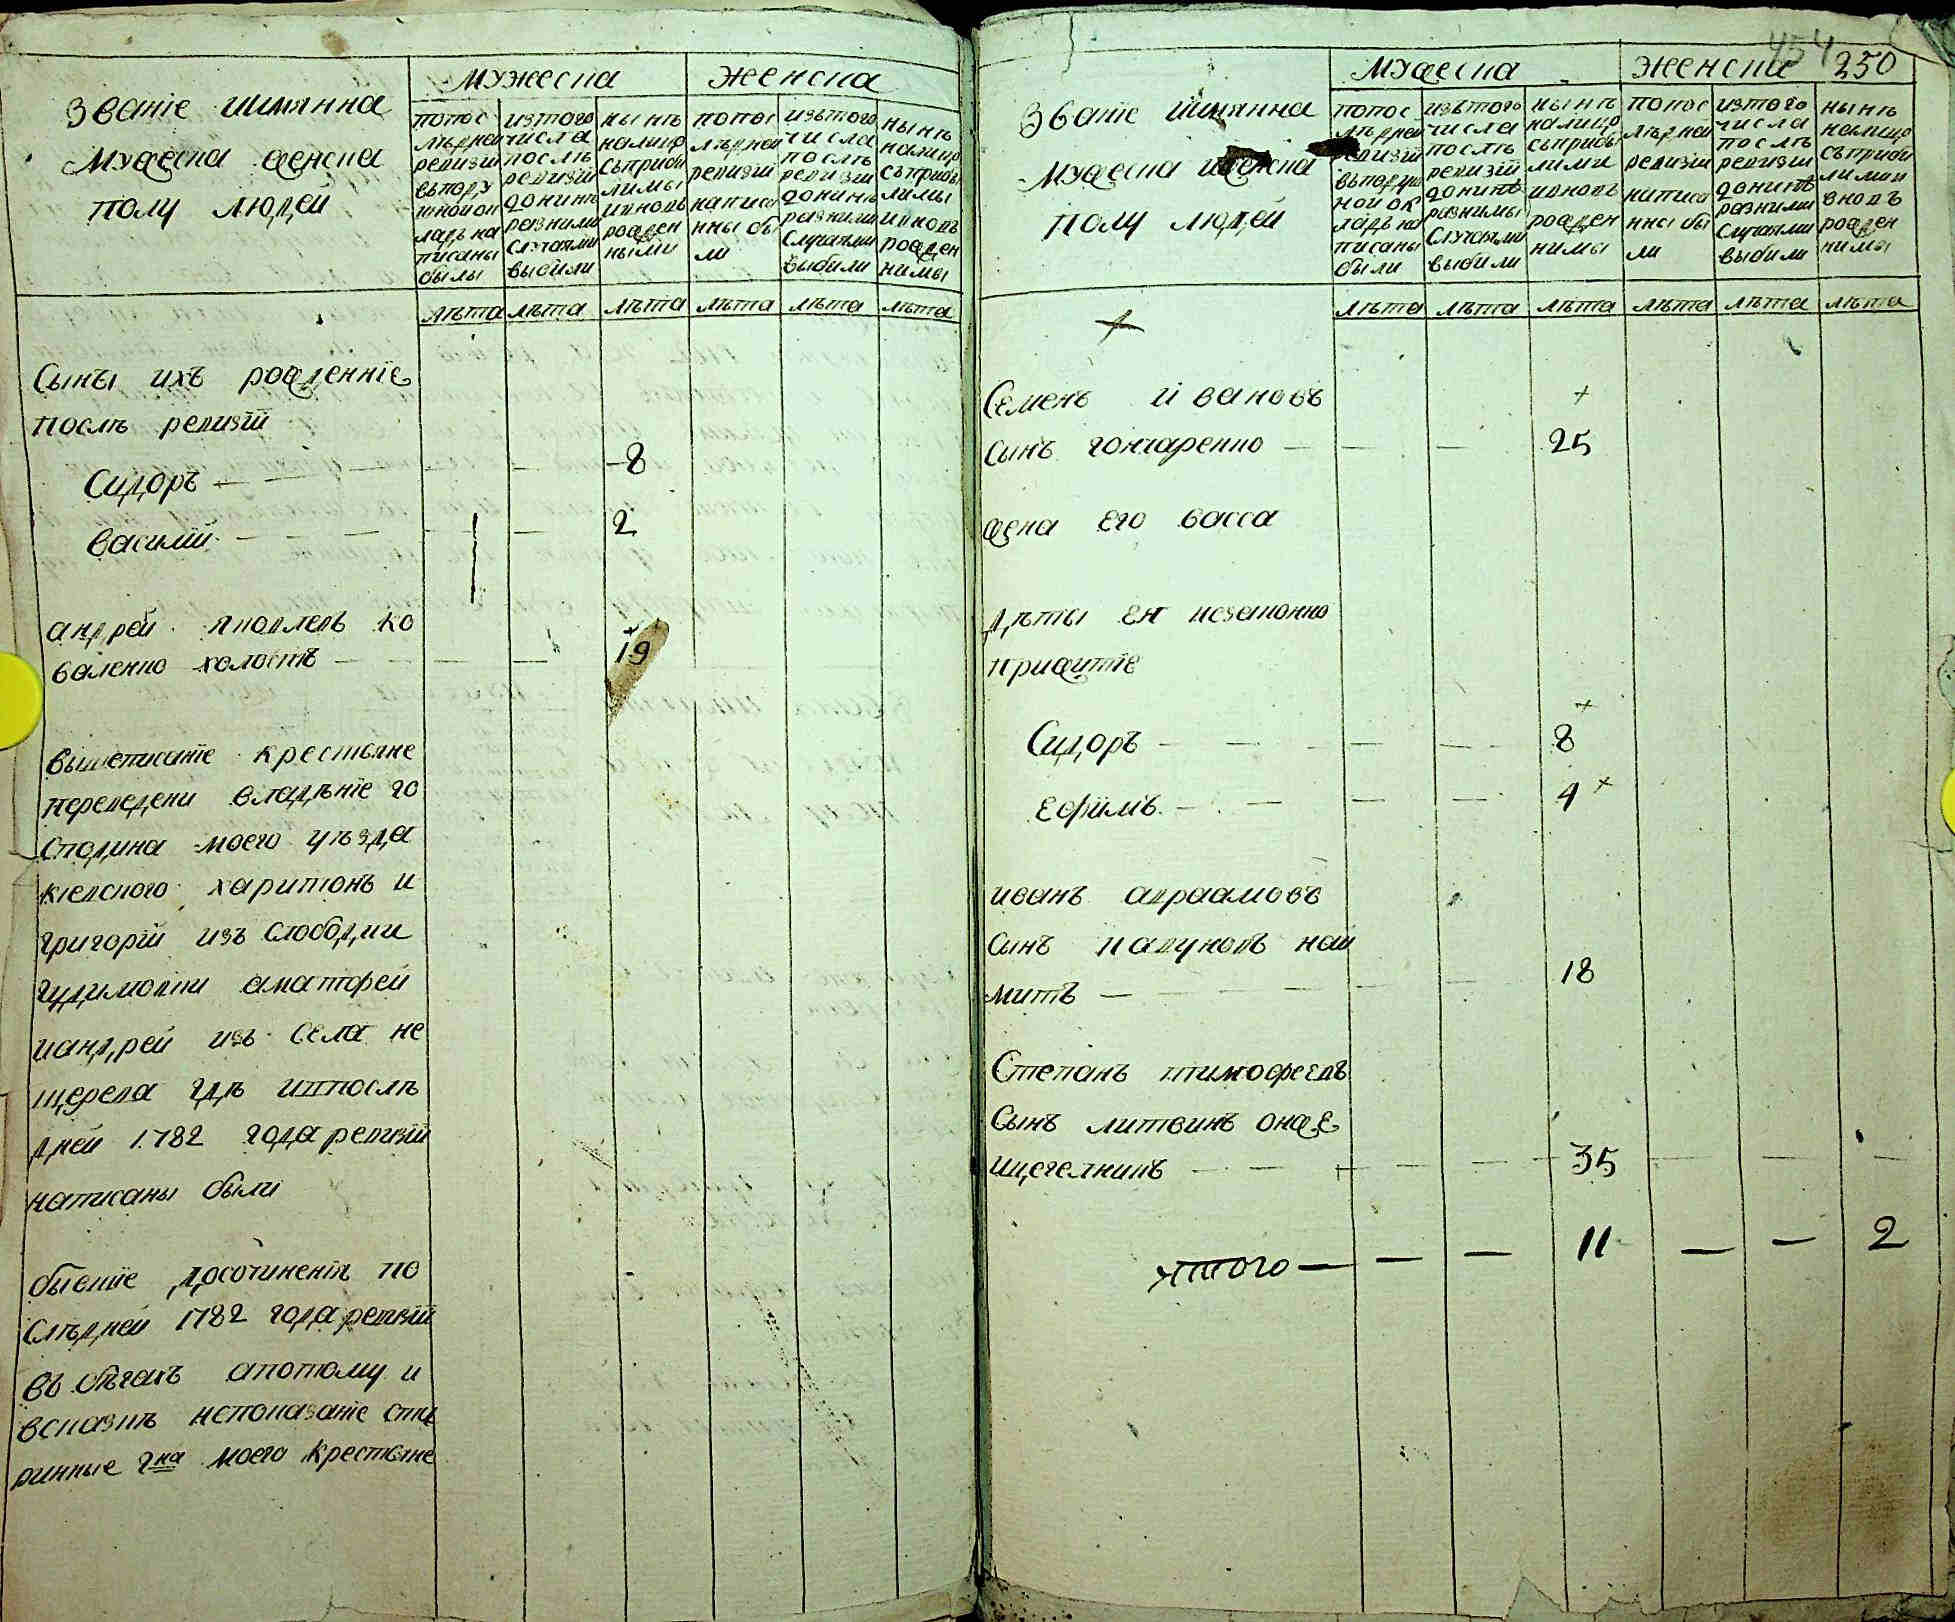 Званіе иимянна
Мужеска женска
полу людей
мужеска
женска
попос
лѣдней
ревизіи
вподу
шной ок
ладъ на
писаны
былы
изътого
числа
послѣ
ревизіи
донинѣ
разними
случаями
выбили
нынѣ
налицо
съприбы
лимы
ивновь
рожден
ными
попос
лѣдней
ревизіи
написа
нны бы
ли
изътого
числа
послѣ
ревизіи
донинѣ
разними
случаями
выбили
нынѣ
налицо
съприбы
лимы
ивновь
рожден
нимы
лѣта лѣта лѣта лѣта лѣта лѣта
Сыны ихъ рожденніе
послѣ ревизіи
Сидоръ - 8
Василій 2
андрей яковлевъ ко
валенко холостъ 19
вышеписаніе крестьяне
переведени владѣніе го
сподина моего уѣзда
кіевского харитонъ и
григорій изъ слободки
гудимовки аматфей
иандрей изъ села не
щерева гдѣ ипослѣ
дней 1782 года ревизіи
написаны были
бывшіе досочиненія по
слѣдней 1782 года ревизіи
въ бѣгахъ апотому и
вսказкѣ непоказаніе ста
ринные гна моего крестьяне
454 250
Званіе иимянна
мужеска иженска
полу людей
мужеска
женски
попос
лѣдней
ревизіи
вподуш
ной ок
ладъ на
писаны
были
изътого
числа
послѣ
ревизіи
донинѣ
разнимы
случаями
выбили
нынѣ
налицо
съприбы
лими
ивновь
рожден
нимы
попос
лѣдней
ревизіи
написа
нны бы
ли
изтого
числа
послѣ
ревизіи
донинѣ
разними
случаями
выбили
нынѣ
налицо
съприби
лими
вновь
рожден
нимы
лѣта лѣта лѣта лѣта лѣта лѣта
Семенъ ивановъ
сынъ гончаренко 25
жена его васса
дѣты ея незаконно
прижитіе
Сидоръ 8
Ефимъ 4
иванъ авраамовъ
синъ кавуновъ наи
митъ 18
Степанъ тимофеевъ
Сынъ литвинъ онже
щегелникъ 35
итого 11 2